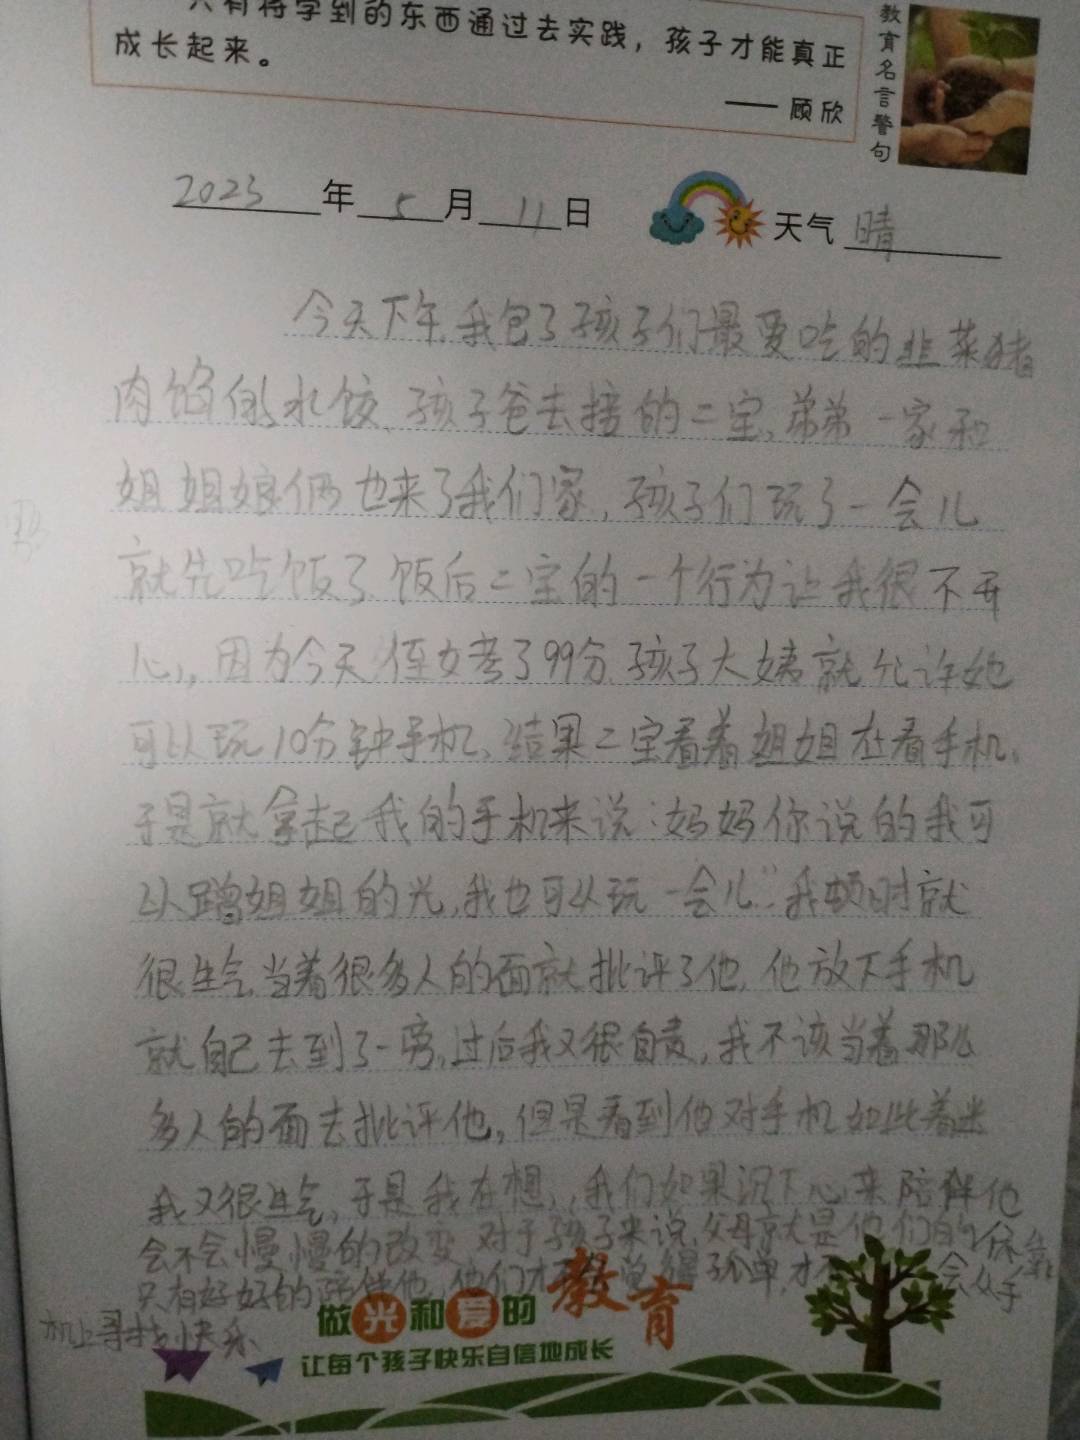 只有将学到的东西通过去实践，孩子才能真正
成长起来。
—— 顾欣
教育名言警句
2023年5月11日 天气 晴
今天下午,我包了孩子们最爱吃的韭菜猪
肉馅的水饺、孩子爸去接的二宝、弟弟一家和
姐姐娘俩也来了我们家，孩子们玩了一会儿
就先吃饭了、饭后二宝的一个行为让我很不开
心，因为今天侄女考了99分、孩子大姨就允许她
可以玩10分钟手机、结果二宝看着姐姐在看手机、
于是就拿起我的手机来说：妈妈你说的我可
以蹭姐姐的光,我也可以玩一会儿”.我顿时就
很生气,当着很多人的面就批评了他,他放下手机
就自己去到了一旁,过后我又很自责,我不该当着那么
多人的面去批评他,但是看到他对手机如此着迷
我又很生气,于是我在想,我们如果沉下心来陪伴他
会不会慢慢的改变,对于孩子来说,父母就是他们的依靠
只有好好的陪伴他,他们才 觉得孤单,才不 会从手
机上寻找快乐
做光和爱的教育
让每个孩子快乐自信地成长